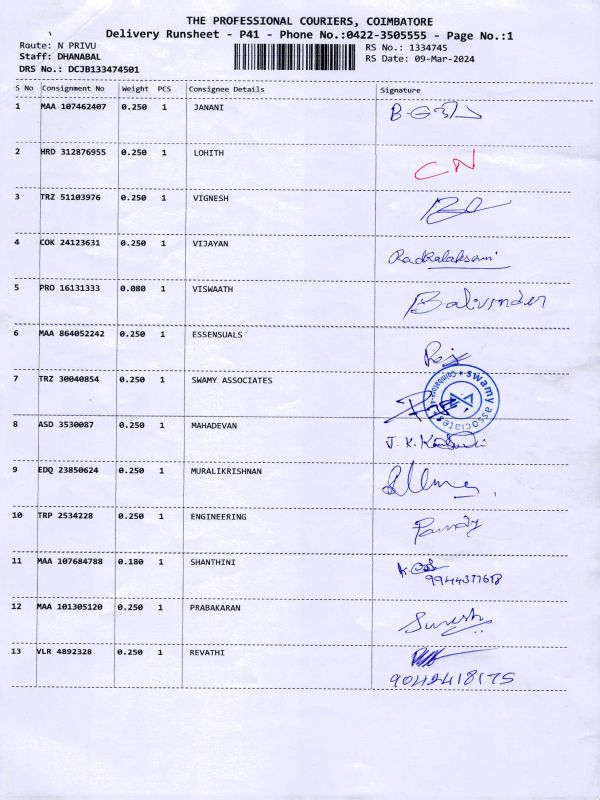 THE PROFESSIONAL COURIERS, COIMBATORE
Delivery Runsheet - P41 - Phone No.:0422-3505555 - Page No.:1
Route: N PRIVU
Staff: DHANABAL
DRS No.: DCJB133474501
RS No.: 1334745
RS Date: 09-Mar-2024
S No Consignment No Weight PCS Consignee Details Signature
1 MAA 107462407 0.250 1 JANANI
2 HRD 312876955 0.250 1 LOHITH CN
3 TRZ 51103976 0.250 1 VIGNESH
4 COK 24123631 0.250 1 VIJAYAN
5 PRO 16131333 0.080 1 VISWAATH Balvinder
6 MAA 864052242 0.250 1 ESSENSUALS
7 TRZ 30040854 0.250 1 SWAMY ASSOCIATES
swamy associates
8 ASD 3530087 0.250 1 MAHADEVAN
9 EDQ 23850624 0.250 1 MURALIKRISHNAN
10 TRP 2534228 0.250 1 ENGINEERING
11 MAA 107684788 0.180 1 SHANTHINI
12 MAA 101305120 0.250 1 PRABAKARAN Suresh
13 VLR 4892328 0.250 1 REVATHI
9042418175